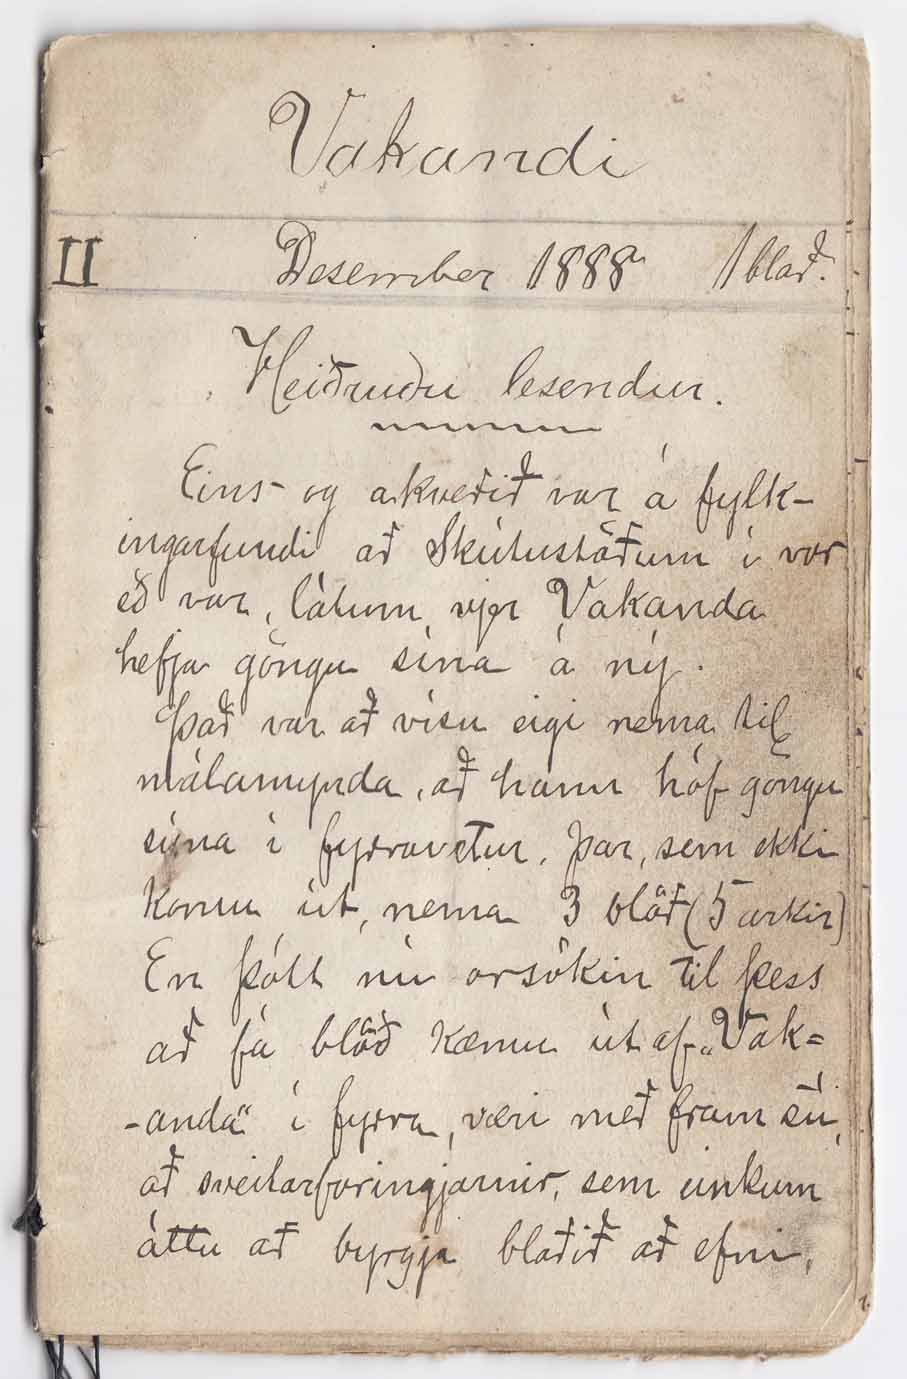 Vakandi
II Desember 1888 1 blað.
Heiðruðu lesendur.
Eins og ákveðið var á fylk-
ingarfundi að Skútustöðum í vor
eð var, látum vjer Vakanda
hefja göngu sína á ný.
Það var að vísu eigi nema til
málamynda, að hann hóf göngu
sína í fyrravetur, þar, sem ekki
komu út, nema 3 blöð (5 arkir)
En þótt nú orsökin til þess
að fá blöð kæmu út af „Vak=
-anda“ í fyrra, væri með fram sú,
að sveitarforingjarnir, sem einkum
áttu að byrgja blaðið að efni,